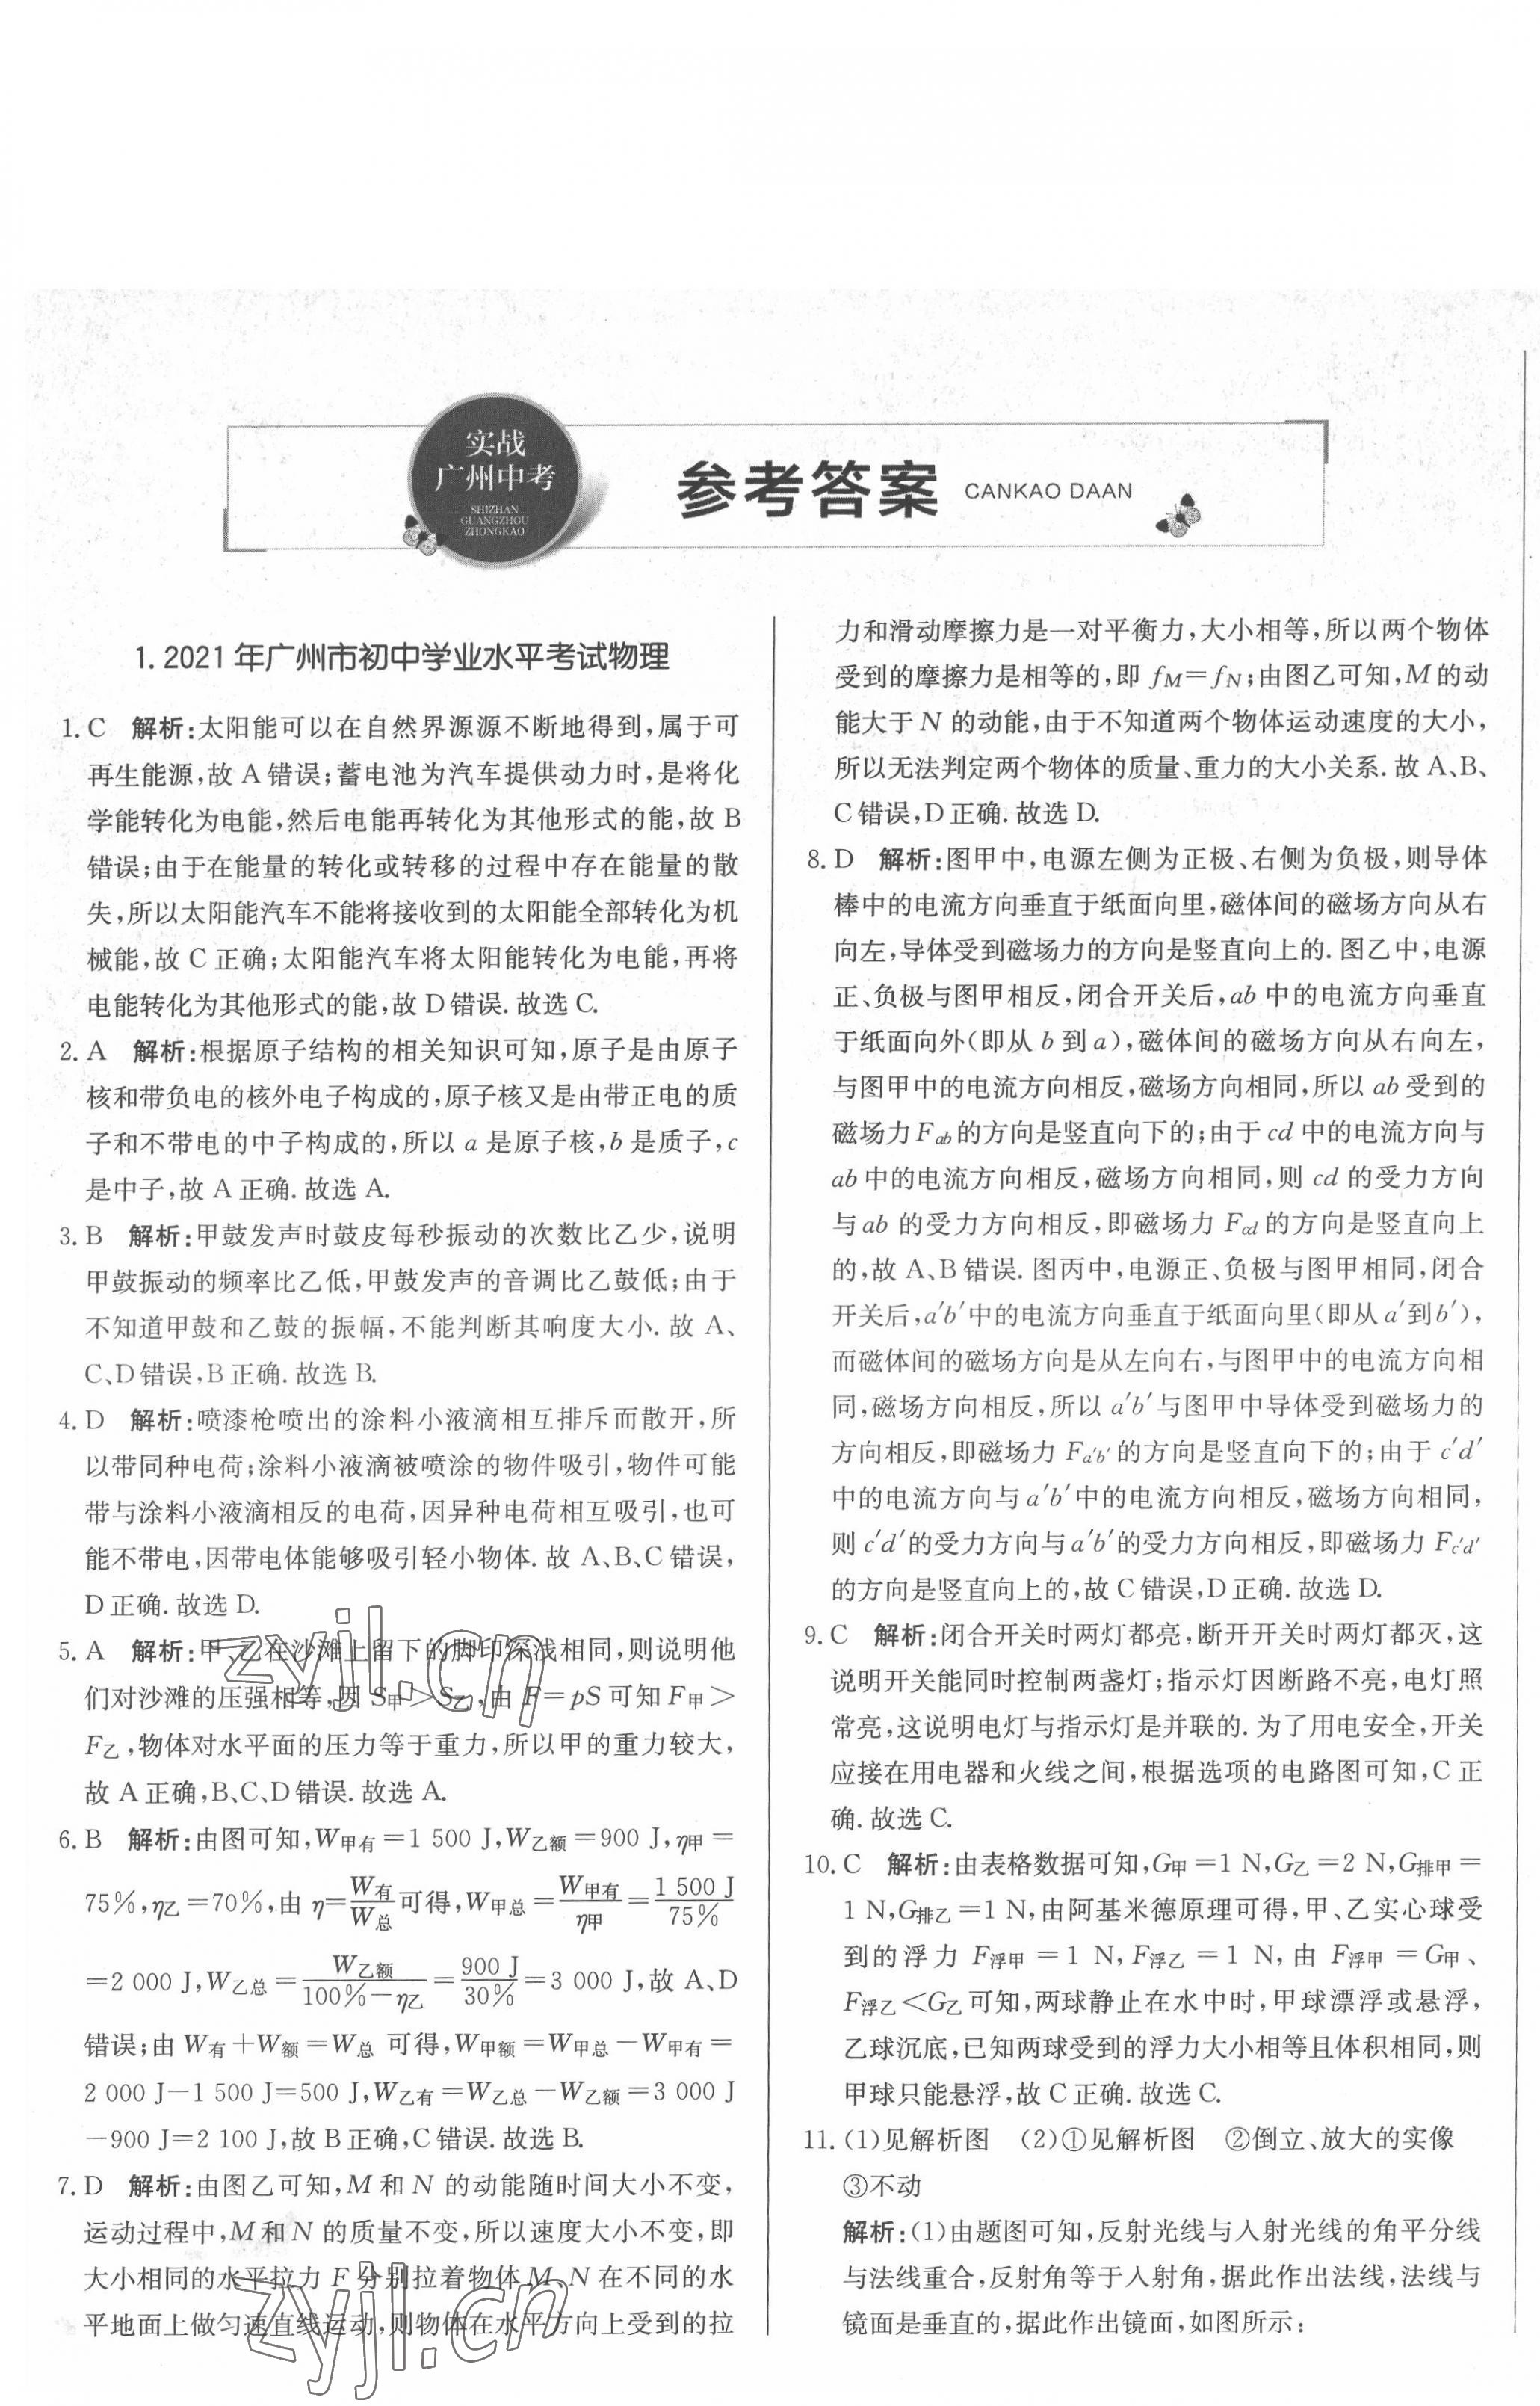 实战
广州中考
SHIZHAN
GUANGZHOU
ZHONGKAO
参考答案 CANKAO DAAN
1. 2021 年广州市初中学业水平考试物理
1. C 解析:太阳能可以在自然界源源不断地得到,属于可
再生能源,故 A 错误;蓄电池为汽车提供动力时,是将化
学能转化为电能,然后电能再转化为其他形式的能,故 B
错误;由于在能量的转化或转移的过程中存在能量的散
失,所以太阳能汽车不能将接收到的太阳能全部转化为机
械能,故 C 正确;太阳能汽车将太阳能转化为电能,再将
电能转化为其他形式的能,故 D 错误. 故选 C.
2. A 解析:根据原子结构的相关知识可知,原子是由原子
核和带负电的核外电子构成的,原子核又是由带正电的质
子和不带电的中子构成的,所以 a 是原子核,b 是质子,c
是中子,故 A 正确. 故选 A.
3. B 解析:甲鼓发声时鼓皮每秒振动的次数比乙少,说明
甲鼓振动的频率比乙低,甲鼓发声的音调比乙鼓低;由于
不知道甲鼓和乙鼓的振幅,不能判断其响度大小. 故 A、
C、D 错误,B 正确. 故选 B.
4. D 解析:喷漆枪喷出的涂料小液滴相互排斥而散开,所
以带同种电荷;涂料小液滴被喷涂的物件吸引,物件可能
带与涂料小液滴相反的电荷,因异种电荷相互吸引,也可
能不带电,因带电体能够吸引轻小物体. 故 A、B、C 错误,
D 正确. 故选 D.
5. A 解析:甲、乙在沙滩上留下的脚印深浅相同,则说明他
们对沙滩的压强相等,因 S甲>S乙,由 F=pS 可知 F甲>
F乙,物体对水平面的压力等于重力,所以甲的重力较大,
故 A 正确,B、C、D 错误. 故选 A.
6. B 解析:由图可知,W甲有=1 500 J,W乙额=900 J,η甲=
75%,η乙=70%,由 η=W有/W总可得,W甲总=W甲有/η甲=1 500 J/75%
=2 000 J,W乙总=W乙额/(100%-η乙)=900 J/30%=3 000 J,故 A、D
错误;由 W有+W额=W总 可得,W甲额=W甲总-W甲有=
2 000 J-1 500 J=500 J,W乙有=W乙总-W乙额=3 000 J
-900 J=2 100 J,故 B 正确,C 错误. 故选 B.
7. D 解析:由图乙可知,M 和 N 的动能随时间大小不变,
运动过程中,M 和 N 的质量不变,所以速度大小不变,即
大小相同的水平拉力 F 分别拉着物体 M、N 在不同的水
平地面上做匀速直线运动,则物体在水平方向上受到的拉
力和滑动摩擦力是一对平衡力,大小相等,所以两个物体
受到的摩擦力是相等的,即 fM=fN;由图乙可知,M 的动
能大于 N 的动能,由于不知道两个物体运动速度的大小,
所以无法判定两个物体的质量、重力的大小关系. 故 A、B、
C 错误,D 正确. 故选 D.
8. D 解析:图甲中,电源左侧为正极、右侧为负极,则导体
棒中的电流方向垂直于纸面向里,磁体间的磁场方向从右
向左,导体受到磁场力的方向是竖直向上的. 图乙中,电源
正、负极与图甲相反,闭合开关后,ab 中的电流方向垂直
于纸面向外(即从 b 到 a),磁体间的磁场方向从右向左,
与图甲中的电流方向相反,磁场方向相同,所以 ab 受到的
磁场力 Fab 的方向是竖直向下的;由于 cd 中的电流方向与
ab 中的电流方向相反,磁场方向相同,则 cd 的受力方向
与 ab 的受力方向相反,即磁场力 Fcd 的方向是竖直向上
的,故 A、B 错误. 图丙中,电源正、负极与图甲相同,闭合
开关后,a′b′中的电流方向垂直于纸面向里(即从 a′到b′),
而磁体间的磁场方向是从左向右,与图甲中的电流方向相
同,磁场方向相反,所以 a′b′与图甲中导体受到磁场力的
方向相反,即磁场力 Fa′b′的方向是竖直向下的;由于 c′d′
中的电流方向与 a′b′中的电流方向相反,磁场方向相同,
则 c′d′的受力方向与 a′b′的受力方向相反,即磁场力 Fc′d′
的方向是竖直向上的,故 C 错误,D 正确. 故选 D.
9. C 解析:闭合开关时两灯都亮,断开开关时两灯都灭,这
说明开关能同时控制两盏灯;指示灯因断路不亮,电灯照
常亮,这说明电灯与指示灯是并联的. 为了用电安全,开关
应接在用电器和火线之间,根据选项的电路图可知,C 正
确. 故选 C.
10. C 解析:由表格数据可知,G甲=1 N,G乙=2 N,G排甲=
1 N,G排乙=1 N,由阿基米德原理可得,甲、乙实心球受
到的浮力 F浮甲=1 N,F浮乙=1 N,由 F浮甲=G甲、
F浮乙<G乙可知,两球静止在水中时,甲球漂浮或悬浮,
乙球沉底,已知两球受到的浮力大小相等且体积相同,则
甲球只能悬浮,故 C 正确. 故选 C.
11. (1)见解析图 (2)①见解析图 ②倒立、放大的实像
③不动
解析:(1)由题图可知,反射光线与入射光线的角平分线
与法线重合,反射角等于入射角,据此作出法线,法线与
镜面是垂直的,据此作出镜面,如图所示:
zyjl.cn
zyjl.cn